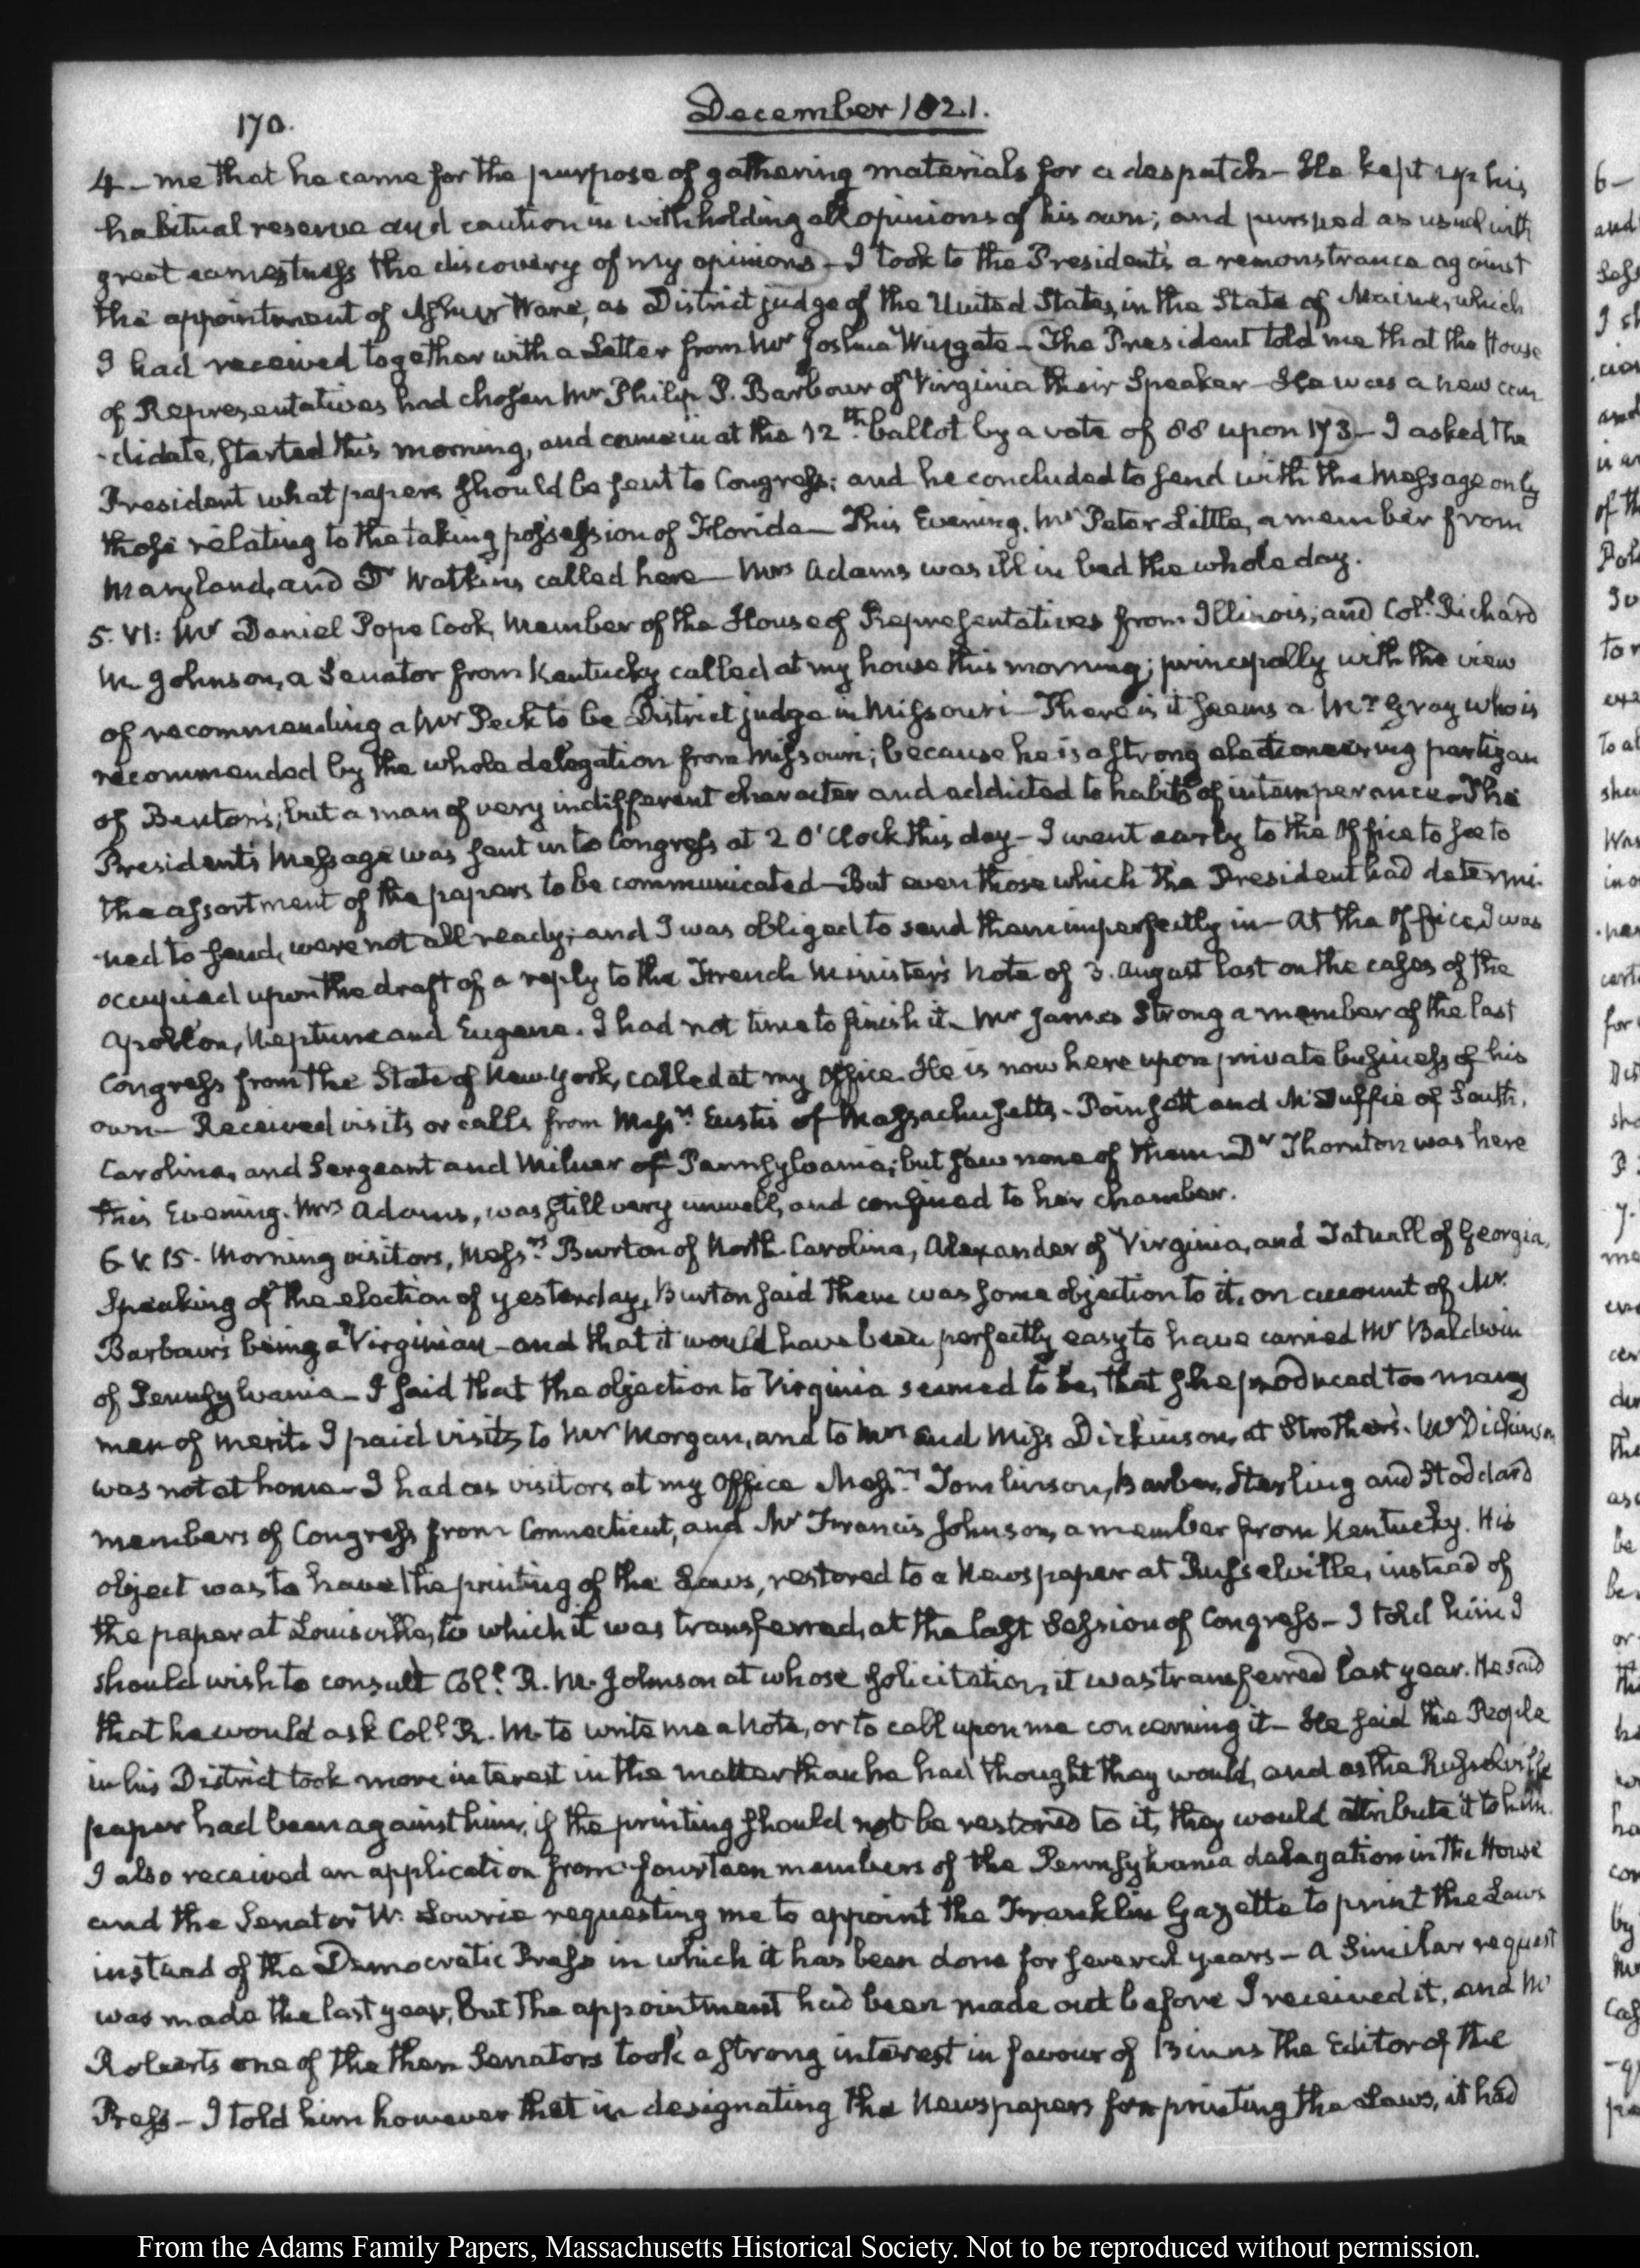 170.
December 1821.
4 - me that he came for the purpose of gathering materials for a despatch - He kept up his
habitual reserve and caution in withholding all opinions of his own; and pursued as usual with
great earnestness the discovery of my opinions - I took to the President's a remonstrance against
the appointment of Ashur Ware, as District judge of the United States, in the State of Maine, which
I had received together with a Letter from Mr Joshua Wingate - The President told me that the House
of Representatives had chosen Mr Philip P. Barbour of Virginia their Speaker - He was a new can
-didate, started this morning, and came in at the 12th. ballot by a vote of 88 upon 173 - I asked the
President what papers should be sent to Congress; and he concluded to send with the Message only
those relating to the taking possession of Florida - This Evening, Mr Peter Little, a member from
Maryland, and Dr Watkins called here - Mrs Adams was ill in bed the whole day.
5. VI: Mr Daniel Pope Cook, Member of the House of Representatives from Illinois; and Coll. Richard
M. Johnson, a Senator from Kentucky called at my house this morning; principally with the view
of recommending a Mr Peck to be District judge in Missouri - There is it seems a Mr Gray who is
recommended by the whole delegation from Missouri; because he is a strong electioneering partizan
of Benton's; but a man of very indifferent character and addicted to habits of intemperance - The
President's Message was sent in to Congress at 2 O'Clock this day - I went early to the Office to see to
the assortment of the papers to be communicated - But even those which the President had determi-
-ned to send, were not all ready; and I was obliged to send them imperfectly in - At the Office, I was
occupied upon the draft of a reply to the French Minister's Note of 3. August last on the cases of the
Apollon, Neptune and Eugene. I had not time to finish it. Mr James Strong a member of the last
Congress from the State of New-York, called at my Office. He is now here upon private business of his
own - Received visits or calls from Messrs. Eustis of Massachusetts - Poinsett and McDuffie of South.
Carolina, and Sergeant and Milnor of Pennsylvania; but saw none of them - Dr Thornton was here
this Evening. Mrs Adams, was still very unwell, and confined to her chamber.
6 V. 15 - Morning visitors, Messrs. Burton of North-Carolina, Alexander of Virginia, and Tatnall of Georgia.
Speaking of the election of yesterday, Burton said there was some objection to it, on account of Mr.
Barbour's being a Virginian - and that it would have been perfectly easy to have carried Mr Baldwin
of Pennsylvania - I said that the objection to Virginia seemed to be, that she produced too many
men of merit. I paid visits to Mr Morgan, and to Mrs and Miss Dickinson, at Strother's. Mr Dickinson
was not at home - I had as visitors at my Office Messrs. Tomlinson, Barber, Sterling and Stoddard
members of Congress from Connecticut, and Mr Francis Johnson, a member from Kentucky. His
object was to have the printing of the Laws, restored to a Newspaper at Russelville, instead of
the paper at Louisville, to which it was transferred, at the last Session of Congress - I told him I
should wish to consult Coll. R. M. Johnson at whose solicitation, it was transferred last year. He said
that he would ask Coll R. M. to write me a Note, or to call upon me concerning it - He said the People
in his District took more interest in the matter than he had thought they would, and as the Russelville
paper had been against him, if the printing should not be restored to it, they would attribute it to him.
I also received an application from fourteen members of the Pennsylvania delegation in the House
and the Senator W. Lowrie requesting me to appoint the Franklin Gazette to print the Laws
instead of the Democratic Press in which it has been done for several years - A similar request
was made the last year, but the appointment had been made out before I received it, and Mr
Roberts one of the then Senators took a strong interest in favour of Binns the Editor of the
Press - I told him however that in designating the Newspapers for printing the Laws, it had
From the Adams Family Papers, Massachusetts Historical Society. Not to be reproduced without permission.